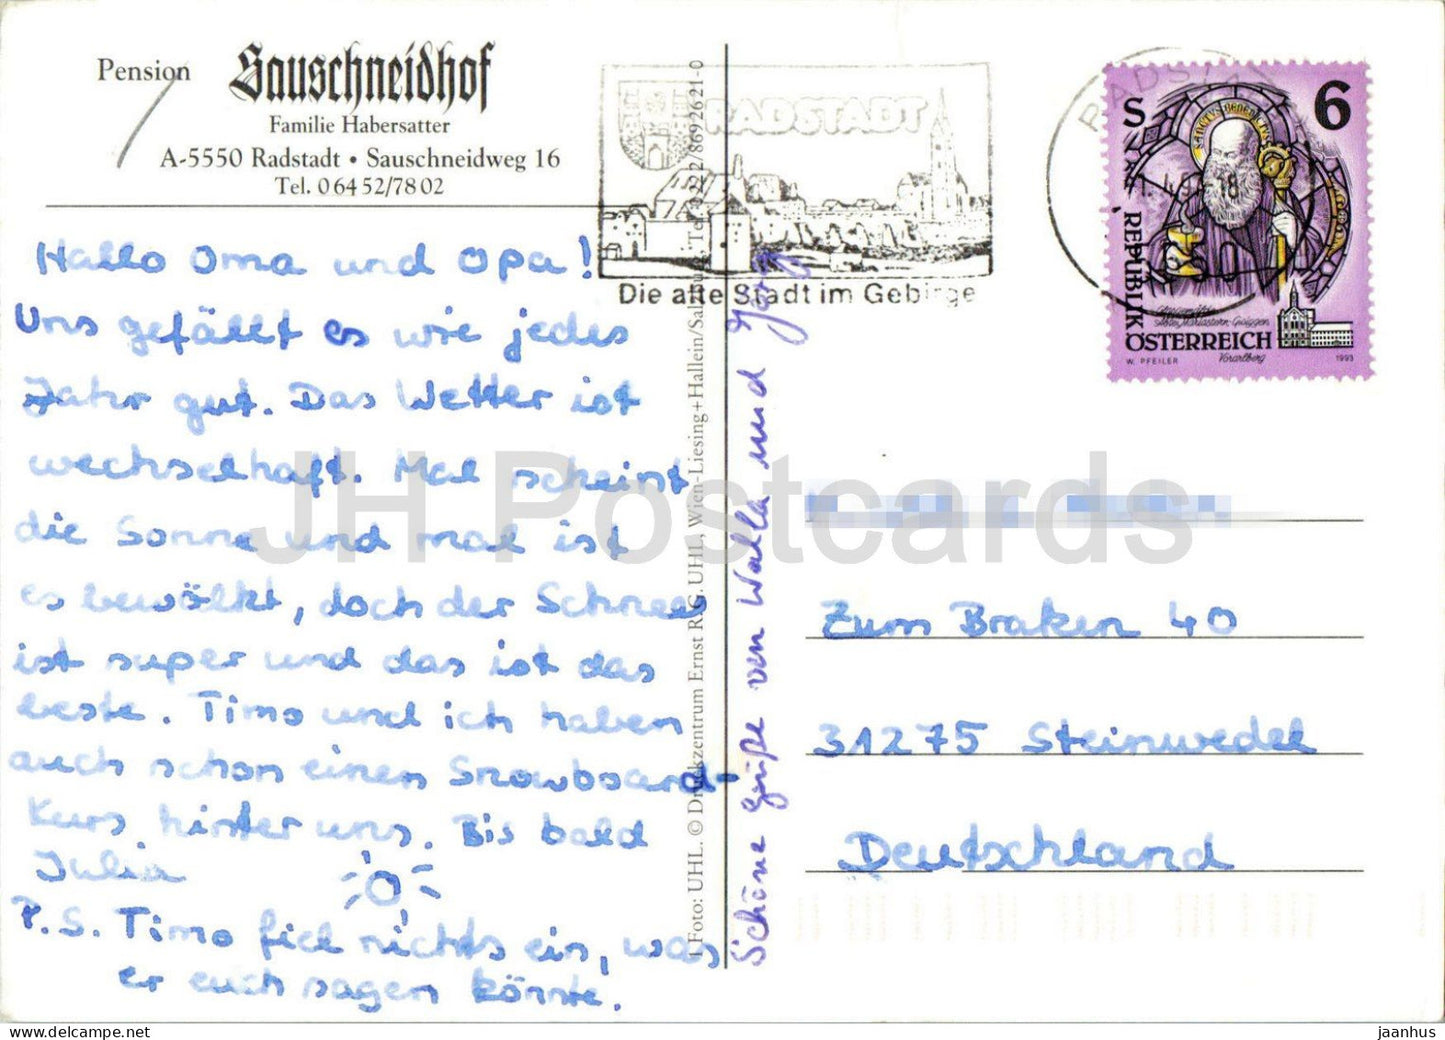 Pension Sauschneidhof
Familie Habersatter
A-5550 Radstadt • Sauschneidweg 16
Tel. 0 64 52/78 02
Hallo Oma und Opa!
Uns gefällt es wie jedes
Jahr gut. Das Wetter ist
wechselhaft. Mal scheint
die Sonne und mal ist
es bewölkt, doch der Schnee
ist super und das ist das
beste. Timo und ich haben
auch schon einen Snowboard-
Kurs hinter uns. Bis bald
Julia
P.S. Timo fiel nichts ein, was
er euch sagen könnte.
Foto: UHL. © Druckzentrum Ernst R.G. UHL, Wien-Liesing+Hallein/Salzburg, Tel. 0222/8692621-0
Schöne Grüße von Walla und Jörg
RADSTADT
Die alte Stadt im Gebirge
RADSTADT
18
S 6
SANCTUS BENEDICTUS
REPUBLIK
ÖSTERREICH
Abtei Mariastern-Gwiggen
Vorarlberg
W. PFEILER
1993
Zum Braken 40
31275 Steinwedel
Deutschland
JH Postcards
jaanhus
www.delcampe.net